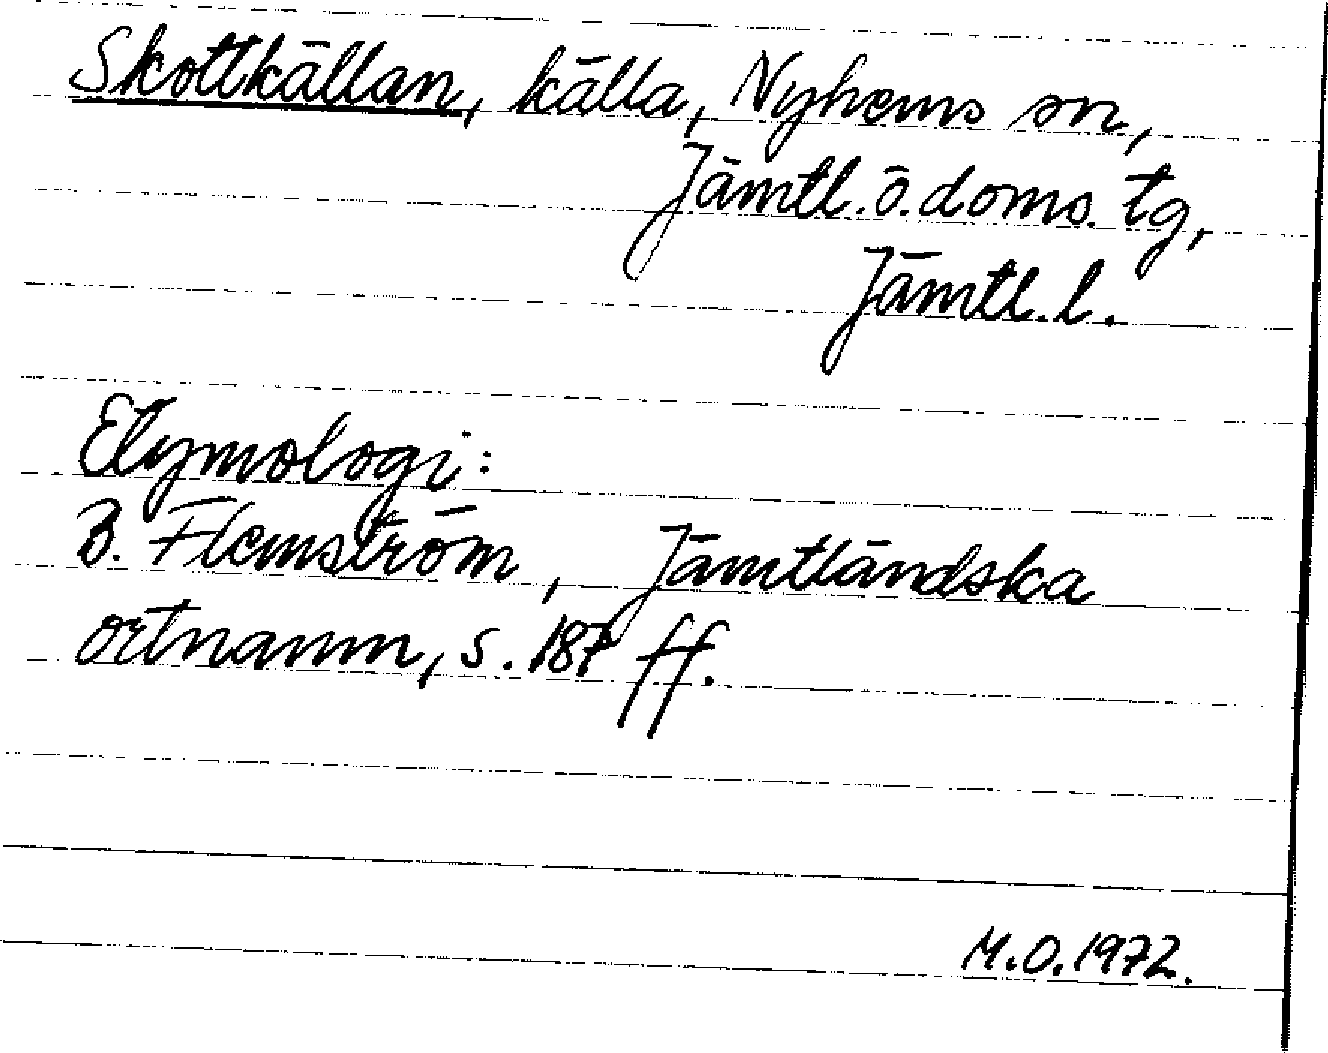 Skottkällan, källa, Nyhems sn,
Jämtl. ö. doms. tg,
Jämtl. l.
Etymologi:
B. Flemström, Jämtländska
ortnamn, s. 187 ff.
M.O. 1972.